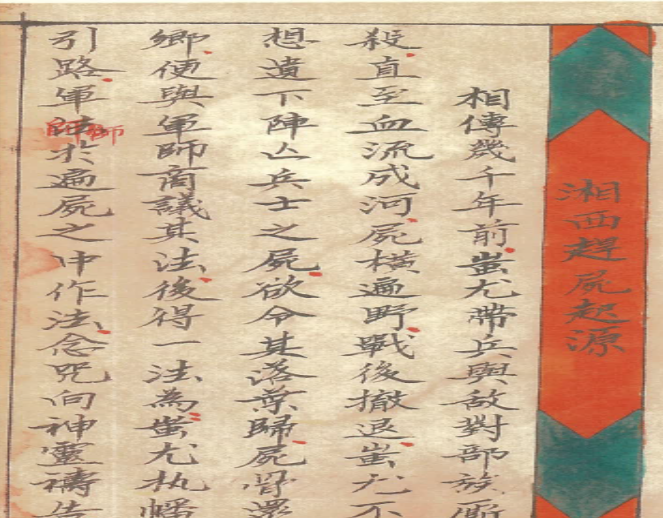 湘西趕屍起源
相傳幾千年前蚩尤帶兵與敵對部族厮
殺直至血流成河屍橫遍野戰後撤退蚩尤不
想遺下陣亡兵士之屍欲令其落葉歸屍骨還
鄉便與軍師商議其法後得一法為蚩尤执幡
引路軍師於遍屍之中作法念咒向神靈禱告